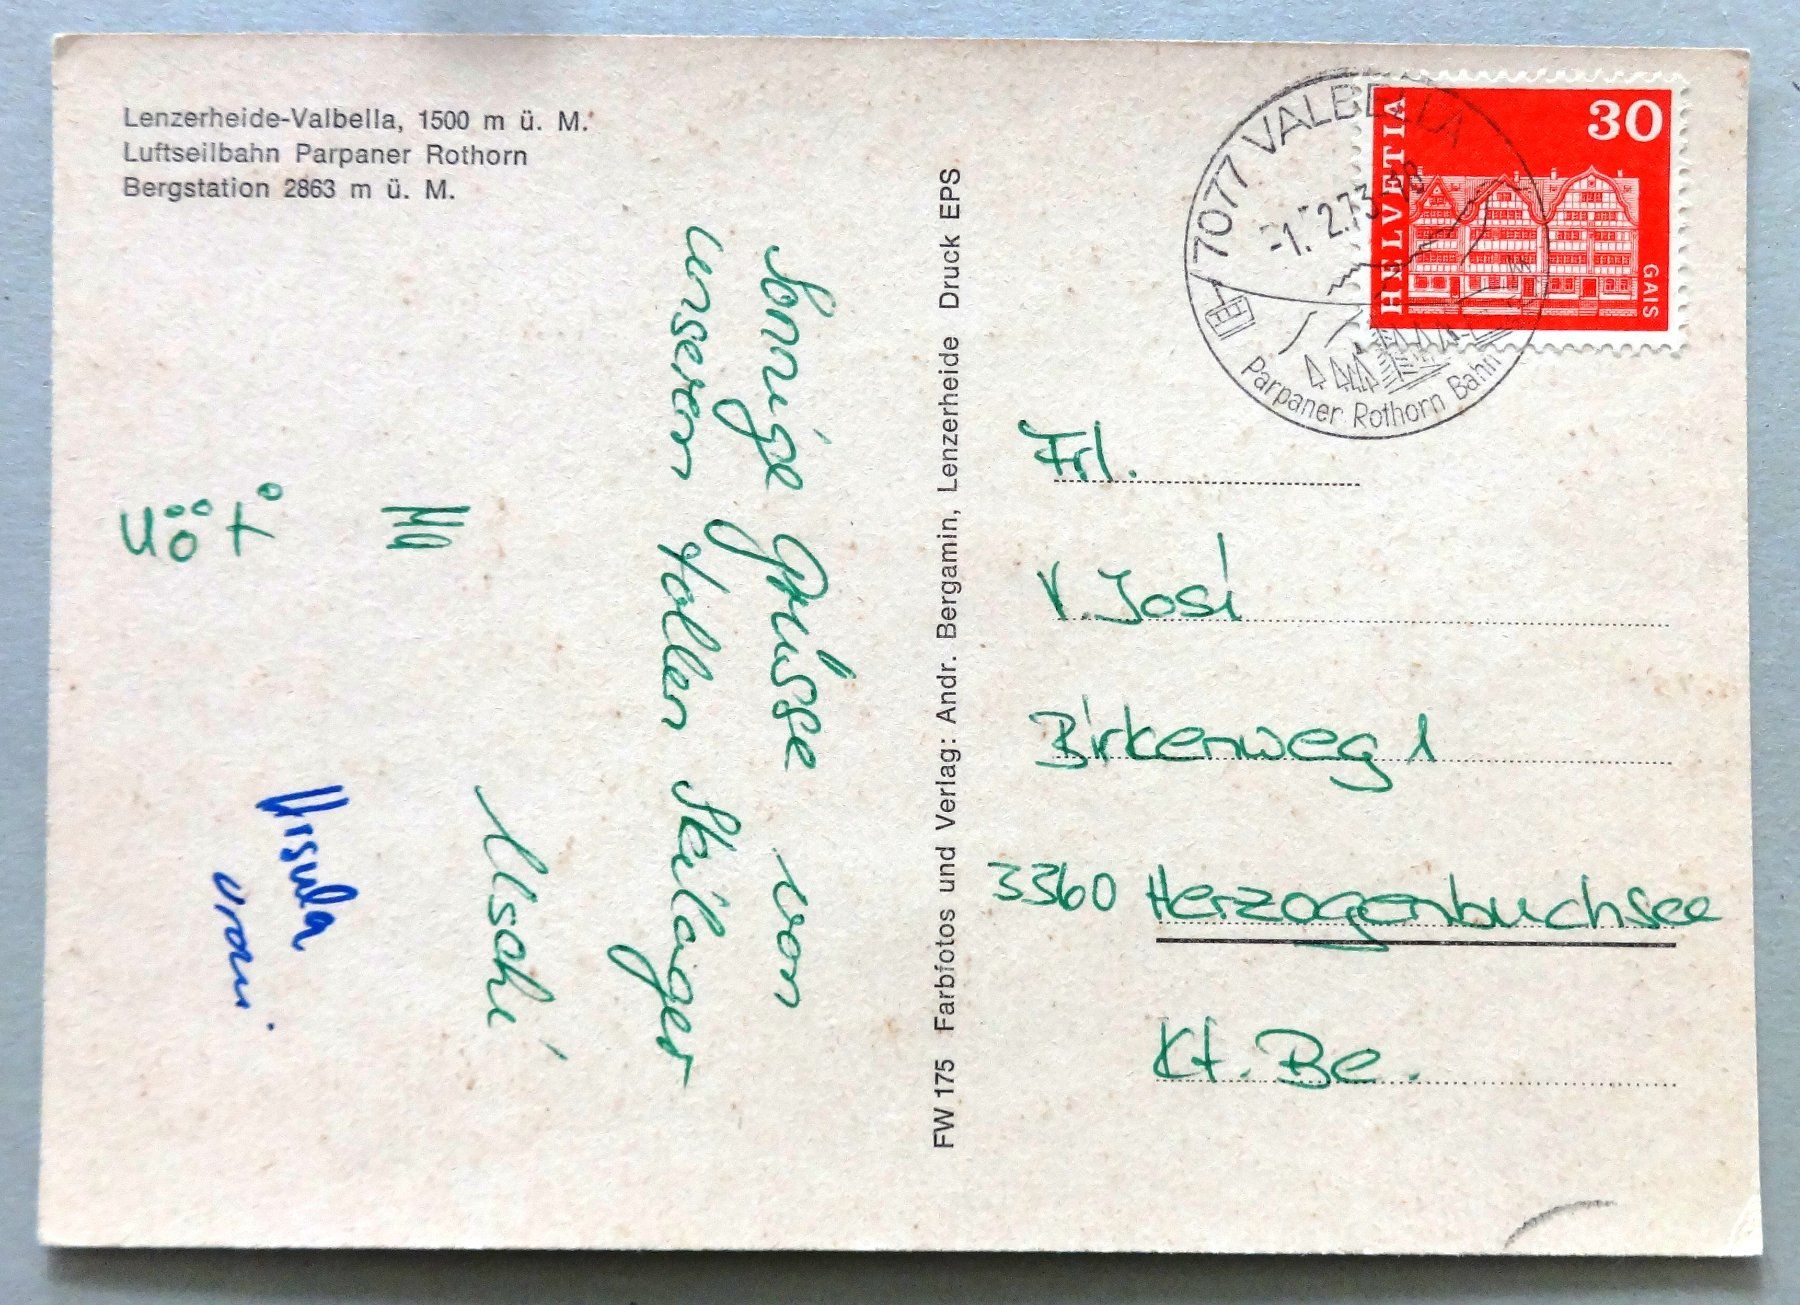 Lenzerheide-Valbella, 1500 m ü. M.
Luftseilbahn Parpaner Rothorn
Bergstation 2863 m ü. M.
Sonnige Grüsse von
unserem tollen Skilager
Uschi
Ursula
FW 175 Farbfotos und Verlag: Andr. Bergamin, Lenzerheide Druck EPS
7077 VALBELLA
-1. 2.73-18
Parpaner Rothorn Bahn
HELVETIA
30
GAIS
Frl.
V. Josi
Birkenweg 1
3360 Herzogenbuchsee
Kt. Be.